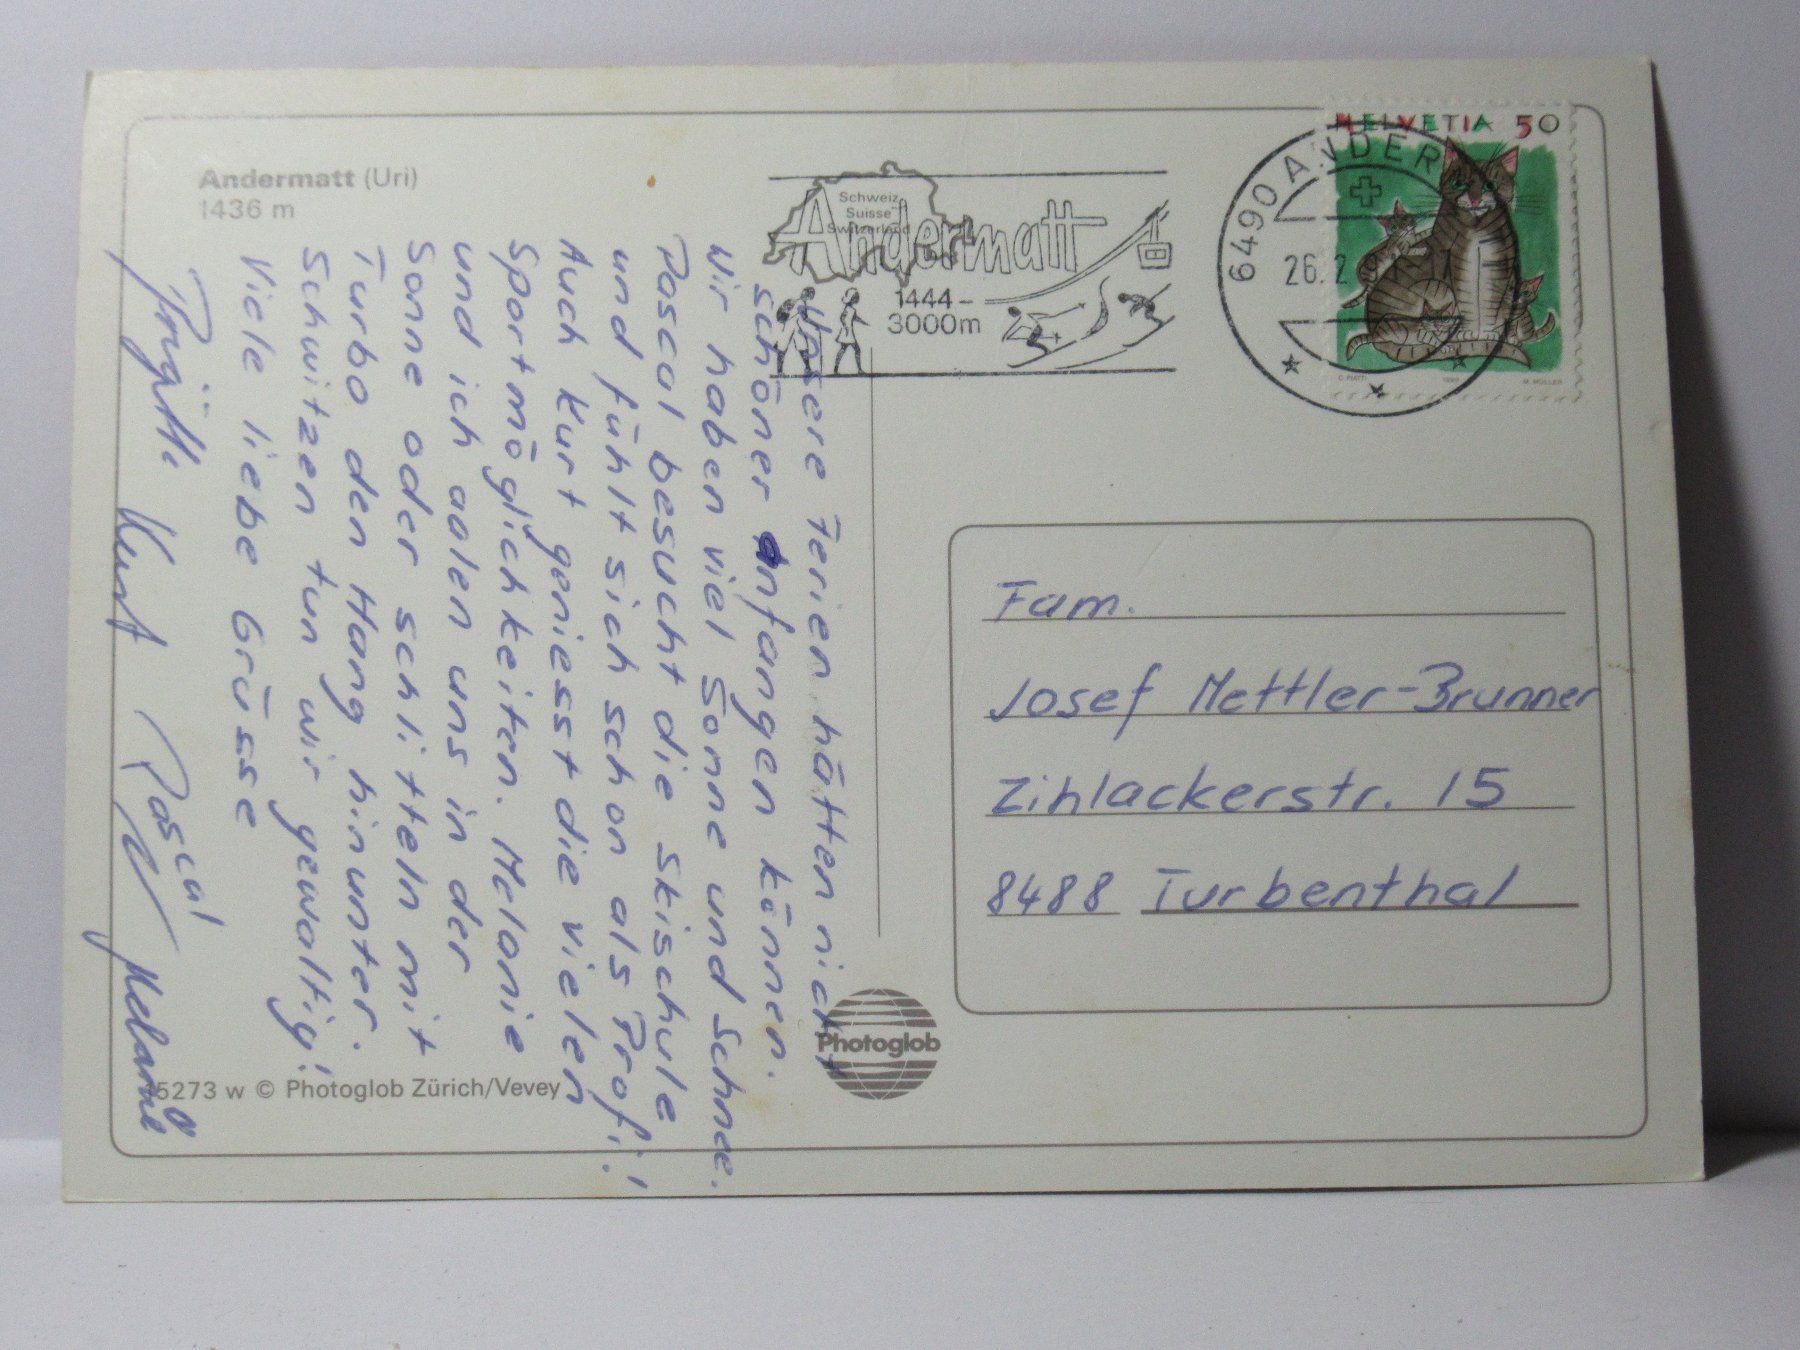 Andermatt (Uri)
1436 m
Schweiz
Suisse
Switzerland
Andermatt
1444 –
3000 m
6490 ANDER
26. 2
HELVETIA 50
M. MÜLLER
Unsere Ferien hätten nicht
schöner anfangen können.
Wir haben viel Sonne und Schnee.
Pascal besucht die Skischule
und fühlt sich schon als Profi!
Auch Kurt geniesst die vielen
Sportmöglichkeiten. Melanie
und ich aalen uns in der
Sonne oder schlitteln mit
Turbo den Hang hinunter.
Schwitzen tun wir gewaltig!
Viele liebe Grüsse
Kurt Pascal Melanie
Fam.
Josef Mettler-Brunner
Zihlackerstr. 15
8488 Turbenthal
Photoglob
5273 w © Photoglob Zürich/Vevey